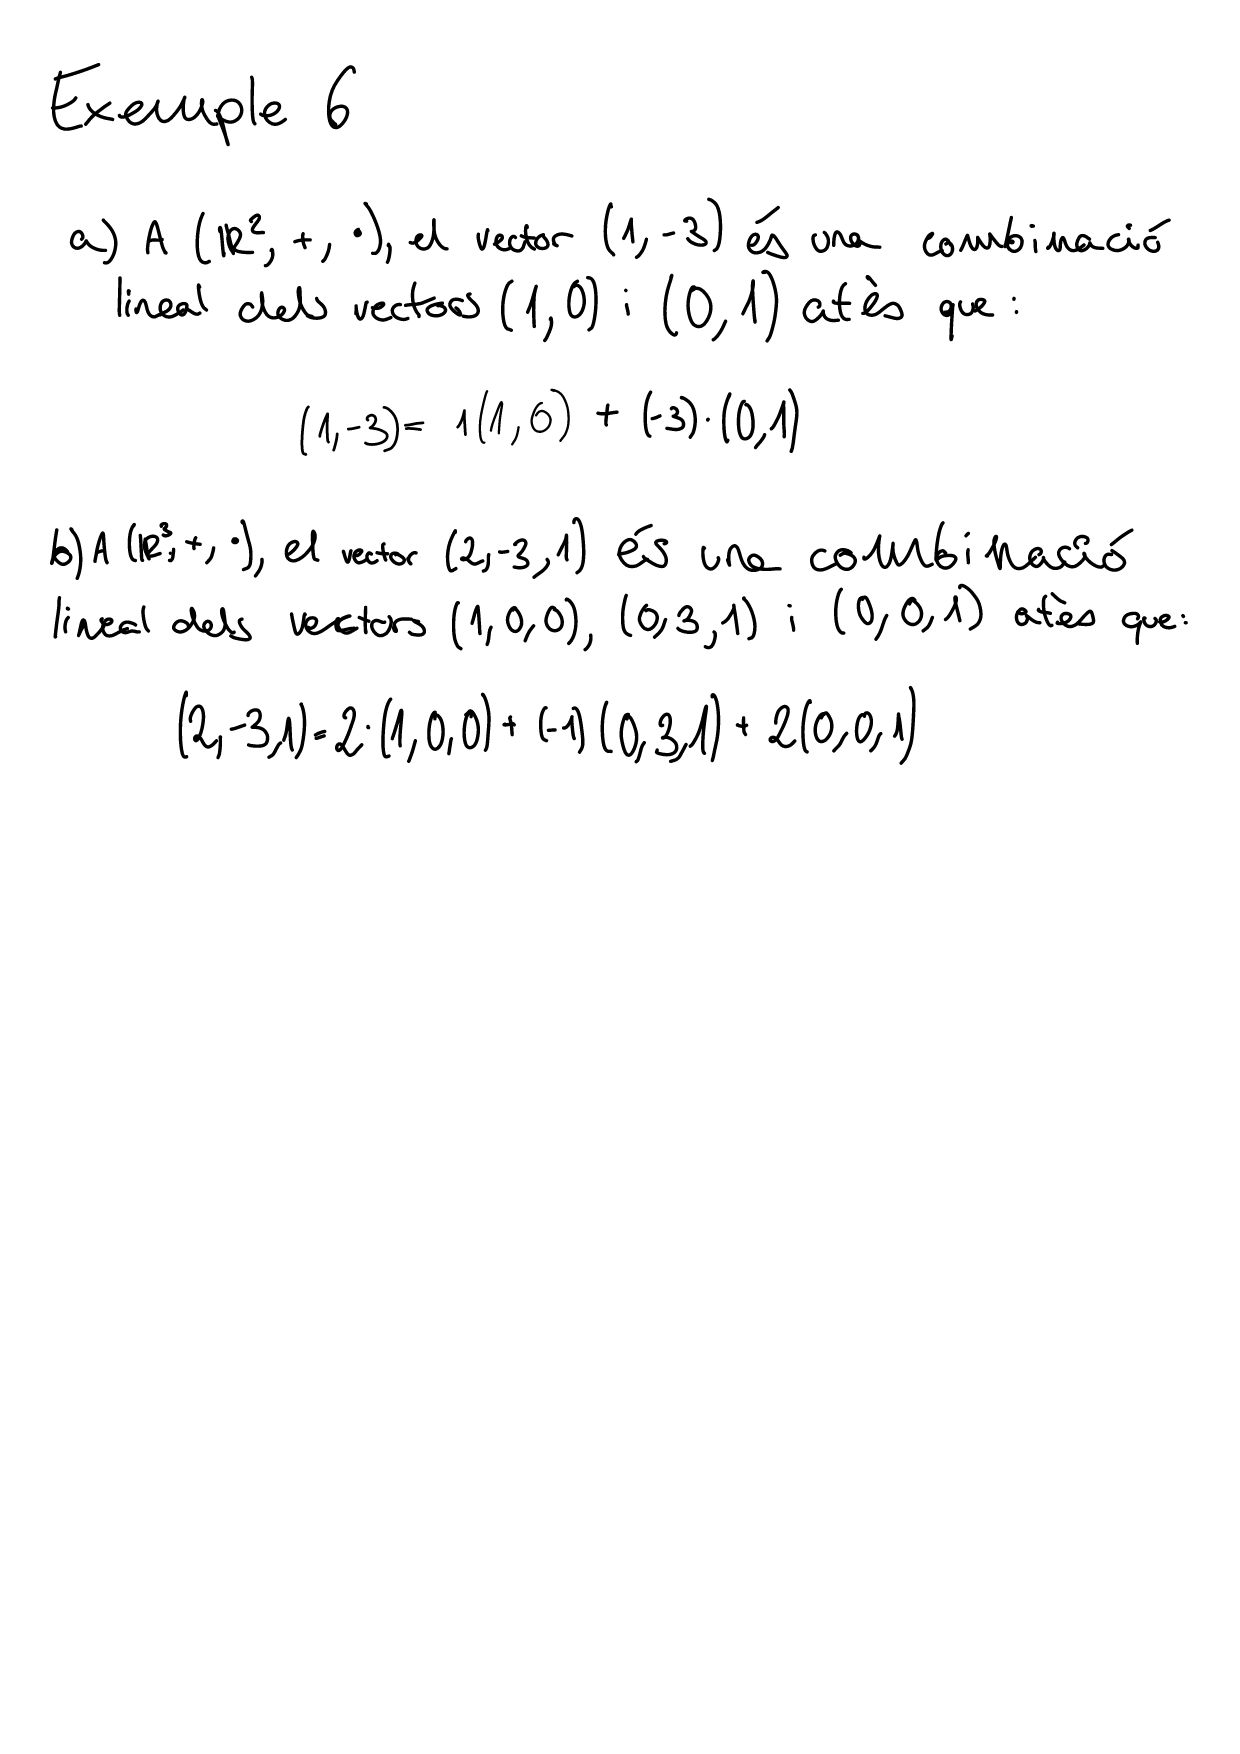 Exemple 6
a) A (ℝ², +, ·), el vector (1, -3) és una combinació
lineal dels vectors (1, 0) i (0, 1) atès que:
(1, -3) = 1(1, 0) + (-3)·(0, 1)
b) A (ℝ³, +, ·), el vector (2, -3, 1) és una combinació
lineal dels vectors (1, 0, 0), (0, 3, 1) i (0, 0, 1) atès que:
(2, -3, 1) = 2·(1, 0, 0) + (-1) (0, 3, 1) + 2(0, 0, 1)